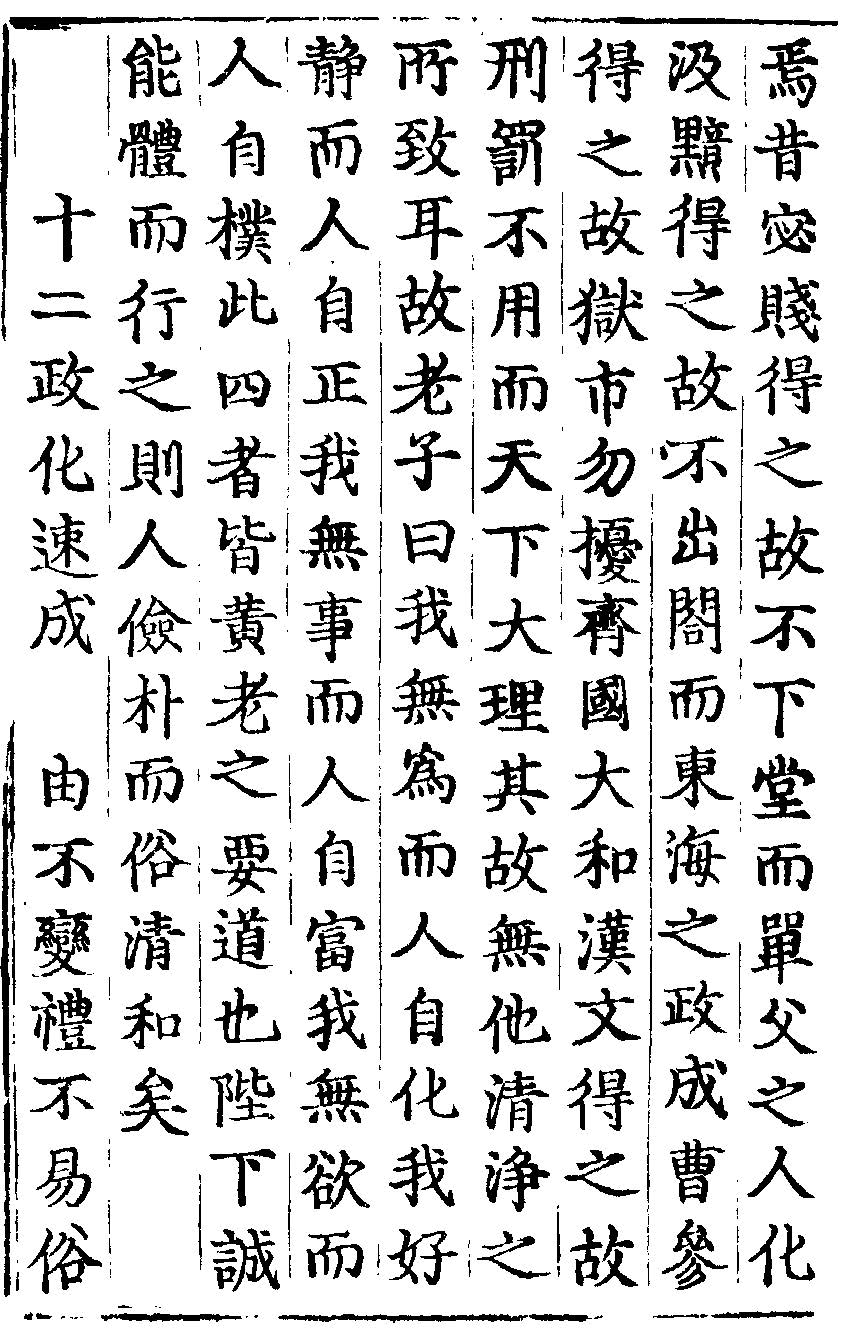 焉昔宓賤得之故不下堂而單父之人化
汲黯得之故不出閤而東海之政成曹參
得之故獄市勿擾齊國大和漢文得之故
刑罰不用而天下大理其故無他清浄之
所致耳故老子曰我無爲而人自化我好
静而人自正我無事而人自富我無欲而
人自樸此四者皆黄老之要道也陛下誠
能體而行之則人儉朴而俗清和矣
十二政化速成　由不變禮不易俗